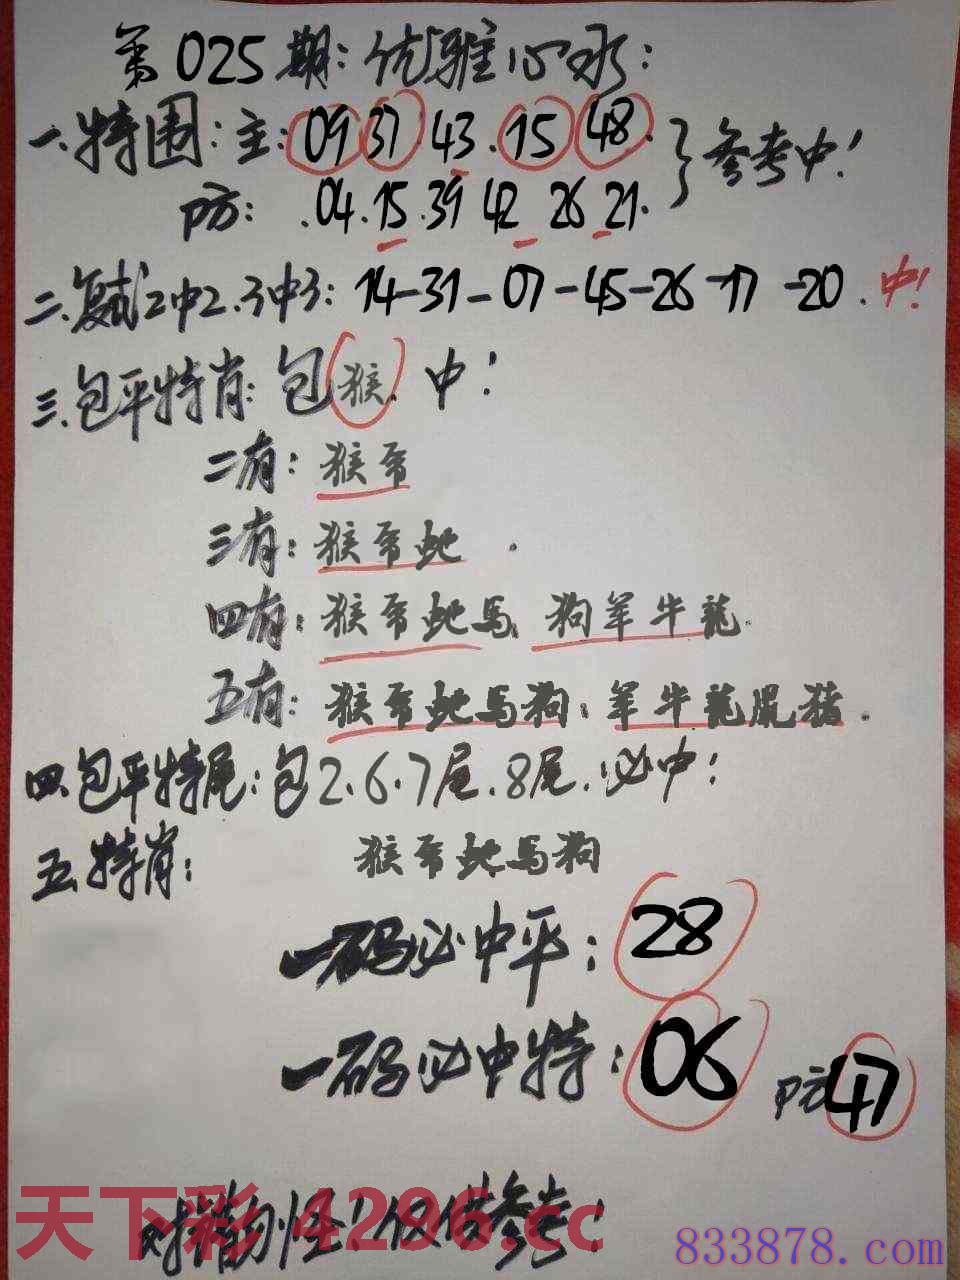 第025期:优雅心水:
一.特围:主:09 37.43.15 48.
防:.04.15.39 42 26 21.
}参考中!
二.复式2中2.3中3:14-31-07-45-26-17-20.中!
三.包平特肖:包猴.中!
二有:猴
三有:猴 蛇.
四有:猴 蛇马.狗羊牛龍.
五有:猴 蛇马狗.羊牛龍鼠猪.
四.包平特尾:包2.6.7尾.8尾.必中!
五.特肖:猴 蛇马狗
一码必中平:28
一码必中特:06 防47
天下彩 4296.cc
猜勿怪!仅供参考!
833878.com